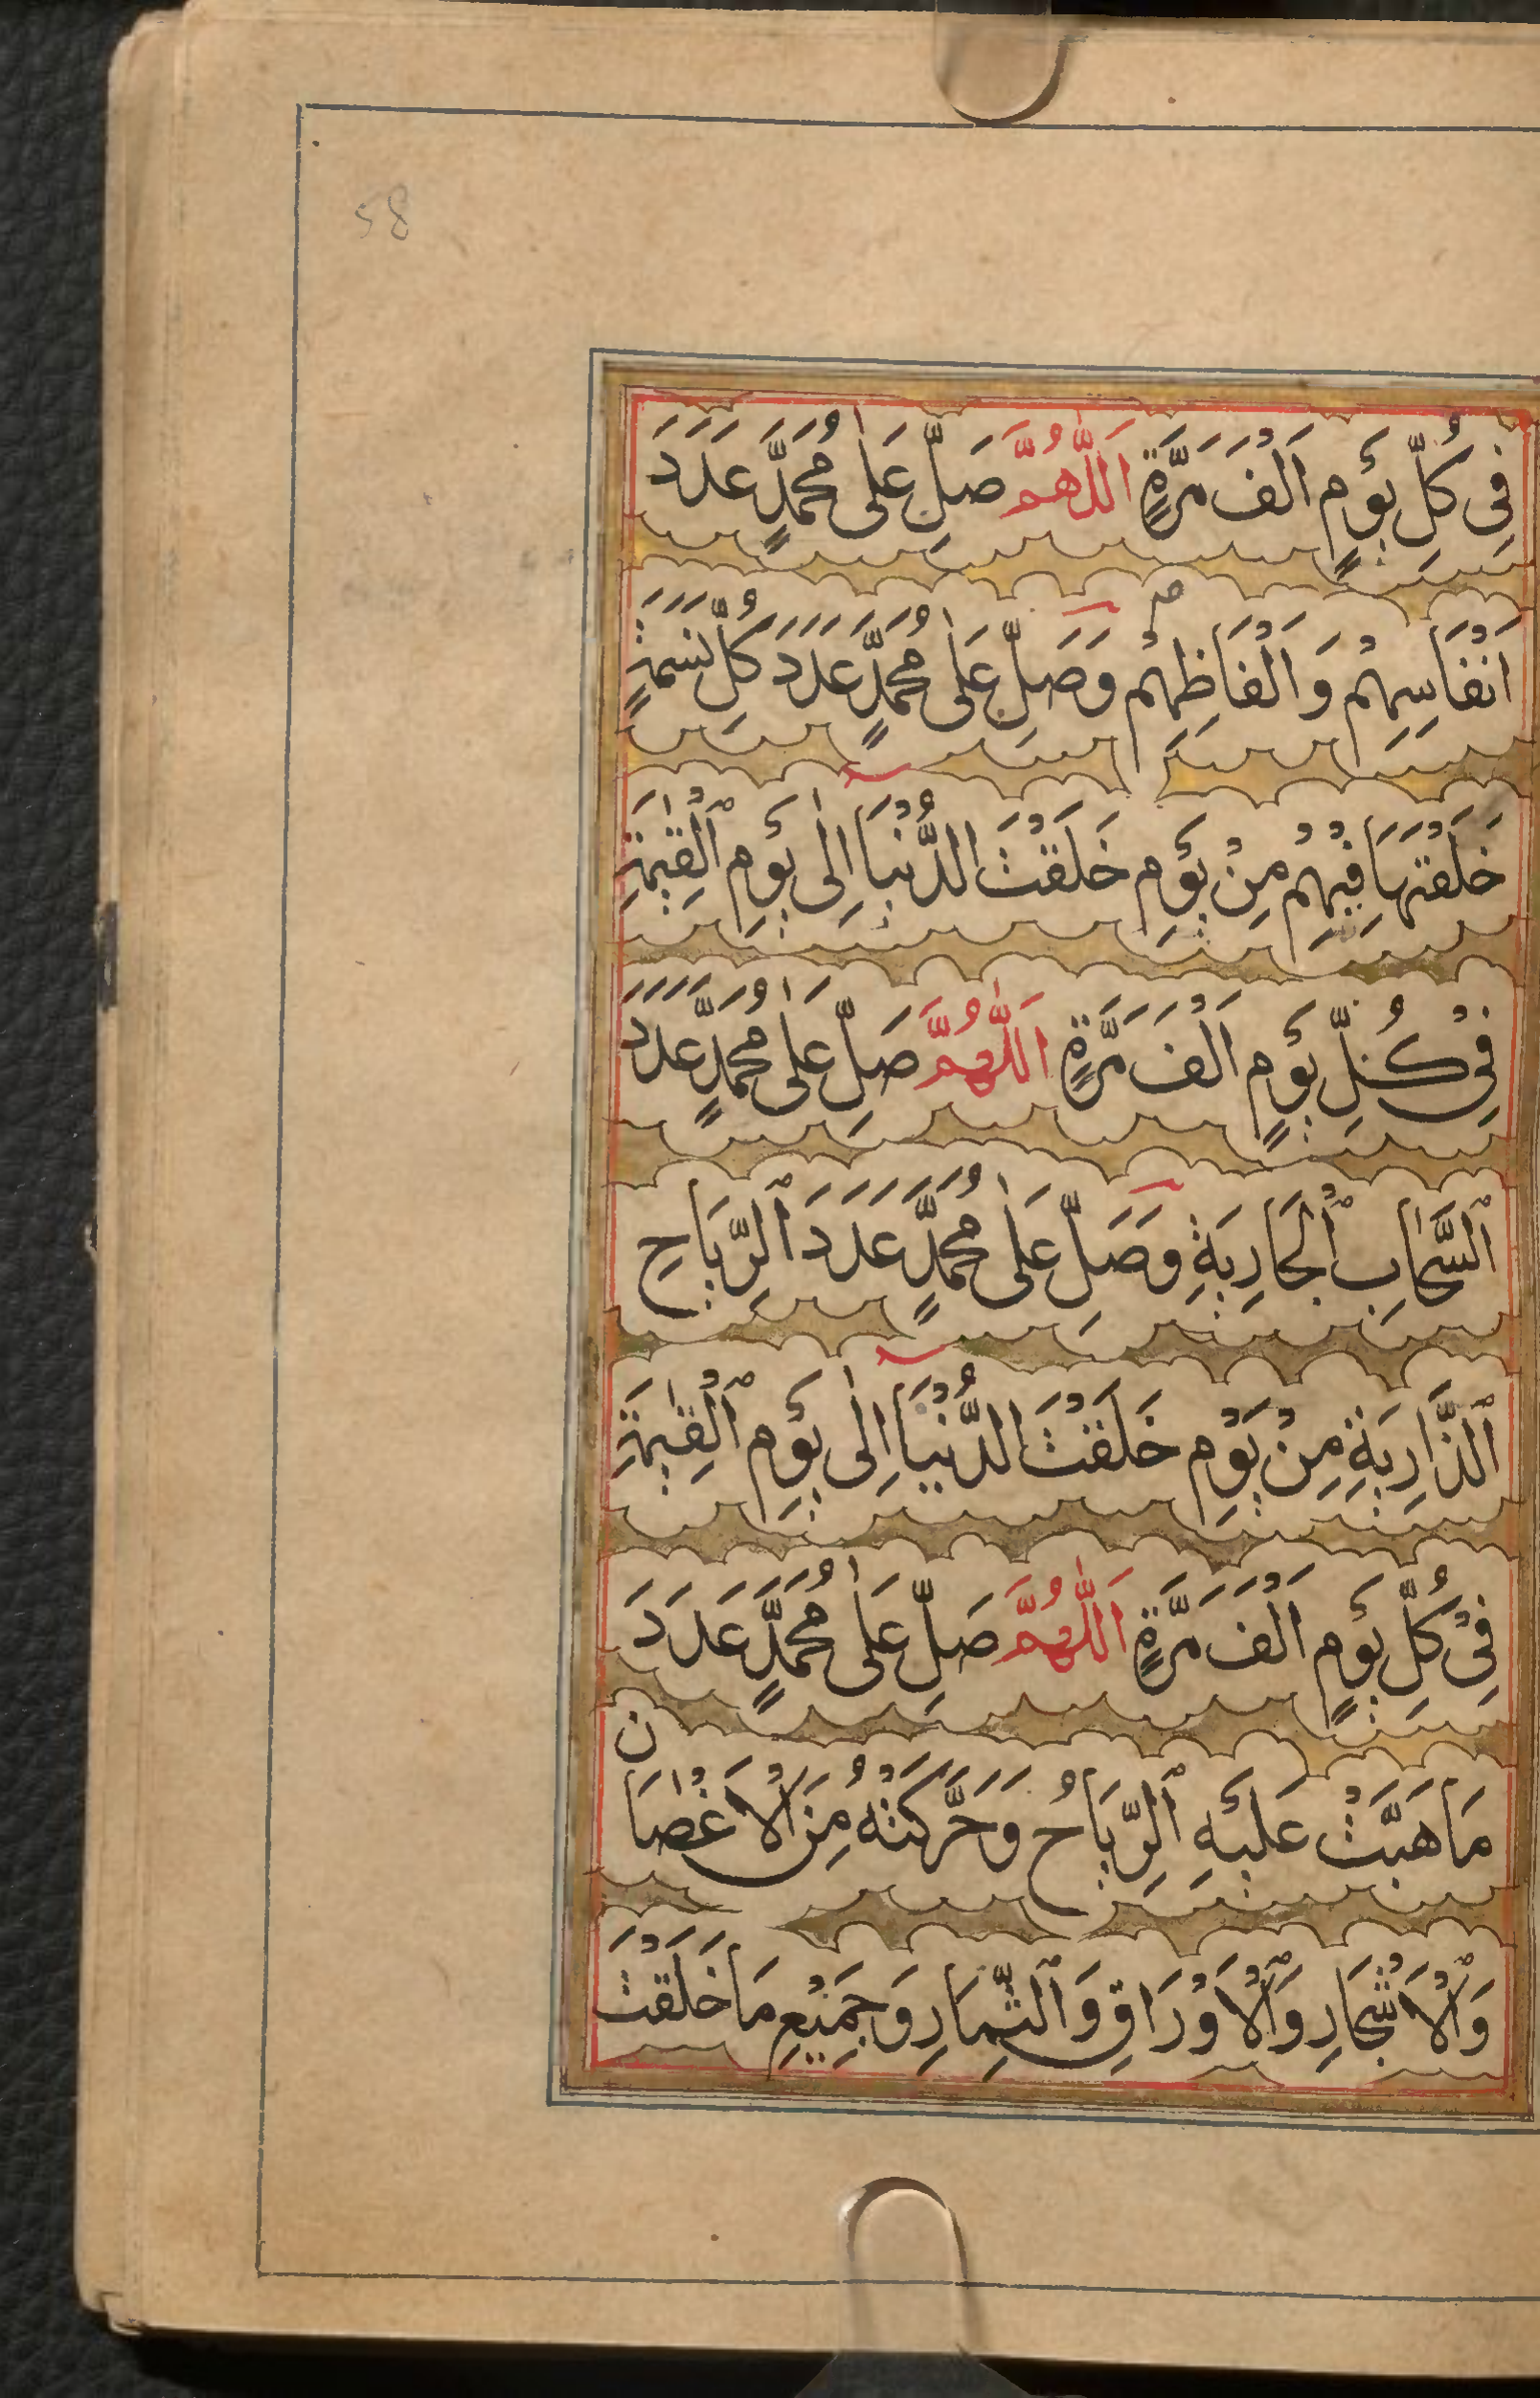 58
فِى كُلِّ يَوْمٍ اَلْفَ مَرَّةٍ اَللّٰهُمَّ صَلِّ عَلٰى مُحَمَّدٍ عَدَدَ
اَنْفَاسِهِمْ وَاَلْفَاظِهِمْ وَصَلِّ عَلٰى مُحَمَّدٍ عَدَدَ كُلِّ نَسَمَةٍ
خَلَقْتَهَا فِيْهِمْ مِنْ يَوْمِ خَلَقْتَ الدُّنْيَا اِلٰى يَوْمِ ٱلْقِيٰمَةِ
فِىْ كُلِّ يَوْمٍ اَلْفَ مَرَّةٍ اَللّٰهُمَّ صَلِّ عَلٰى مُحَمَّدٍ عَدَدَ
ٱلسَّحَابِ ٱلْجَارِيَةِ وَصَلِّ عَلٰى مُحَمَّدٍ عَدَدَ ٱلرِّيَاحِ
ٱلذَّارِيَةِ مِنْ يَوْمِ خَلَقْتَ الدُّنْيَا اِلٰى يَوْمِ ٱلْقِيٰمَةِ
فِىْ كُلِّ يَوْمٍ اَلْفَ مَرَّةٍ اَللّٰهُمَّ صَلِّ عَلٰى مُحَمَّدٍ عَدَدَ
مَا هَبَّتْ عَلَيْهِ ٱلرِّيَاحُ وَحَرَّكَتْهُ مِنَ الْاَغْصَانِ
وَٱلْاَشْجَارِ وَٱلْاَوْرَاقِ وَٱلثِّمَارِ وَجَمِيْعِ مَا خَلَقْتَ